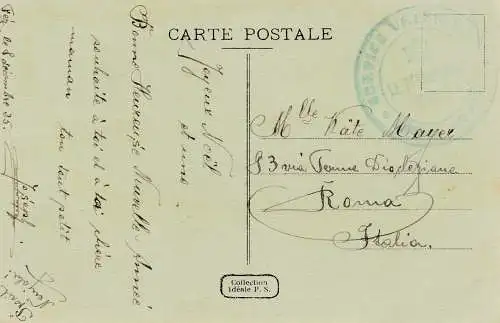 CARTE POSTALE
Joyeux Noël
et une
Bonne Heureuse Nouvelle Année
souhaite à toi et à ta chère
maman ton tout petit
Joseph
Fèz, le 8 décembre 35.
Mlle Käte Mayer
83 via Terme Diocleziane
Roma
Italia.
SERVICE
Collection
Idéale P. S.